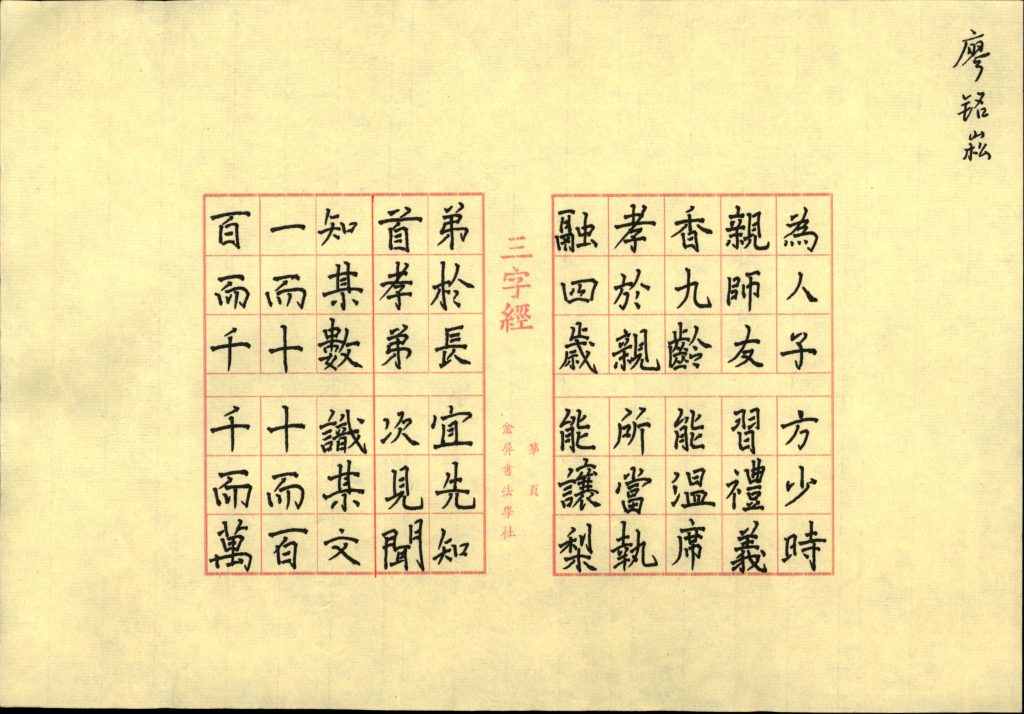 廖铭崧
為人子 方少時
親師友 習禮義
香九齡 能温席
孝於親 所當執
融四歲 能讓梨
三字經
第 頁
金屏書法學社
弟於長 宜先知
首孝弟 次見聞
知某數 識某文
一而十 十而百
百而千 千而萬